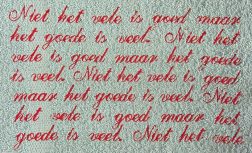 Niet het vele is goed maar
het goede is veel. Niet het
vele is goed maar het goede
is veel. Niet het vele is goed
maar het goede is veel. Niet
het vele is goed maar het
goede is veel. Niet het vele